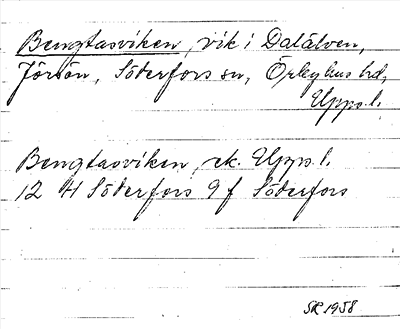 Bengtasviken, vik i Dalälven,
Jörsön, Söderfors sn, Örbyhus hd,
Upps.l.
Bengtasviken, ek. Upps.l.
12 H Söderfors 9 f Söderfors
SR 1958